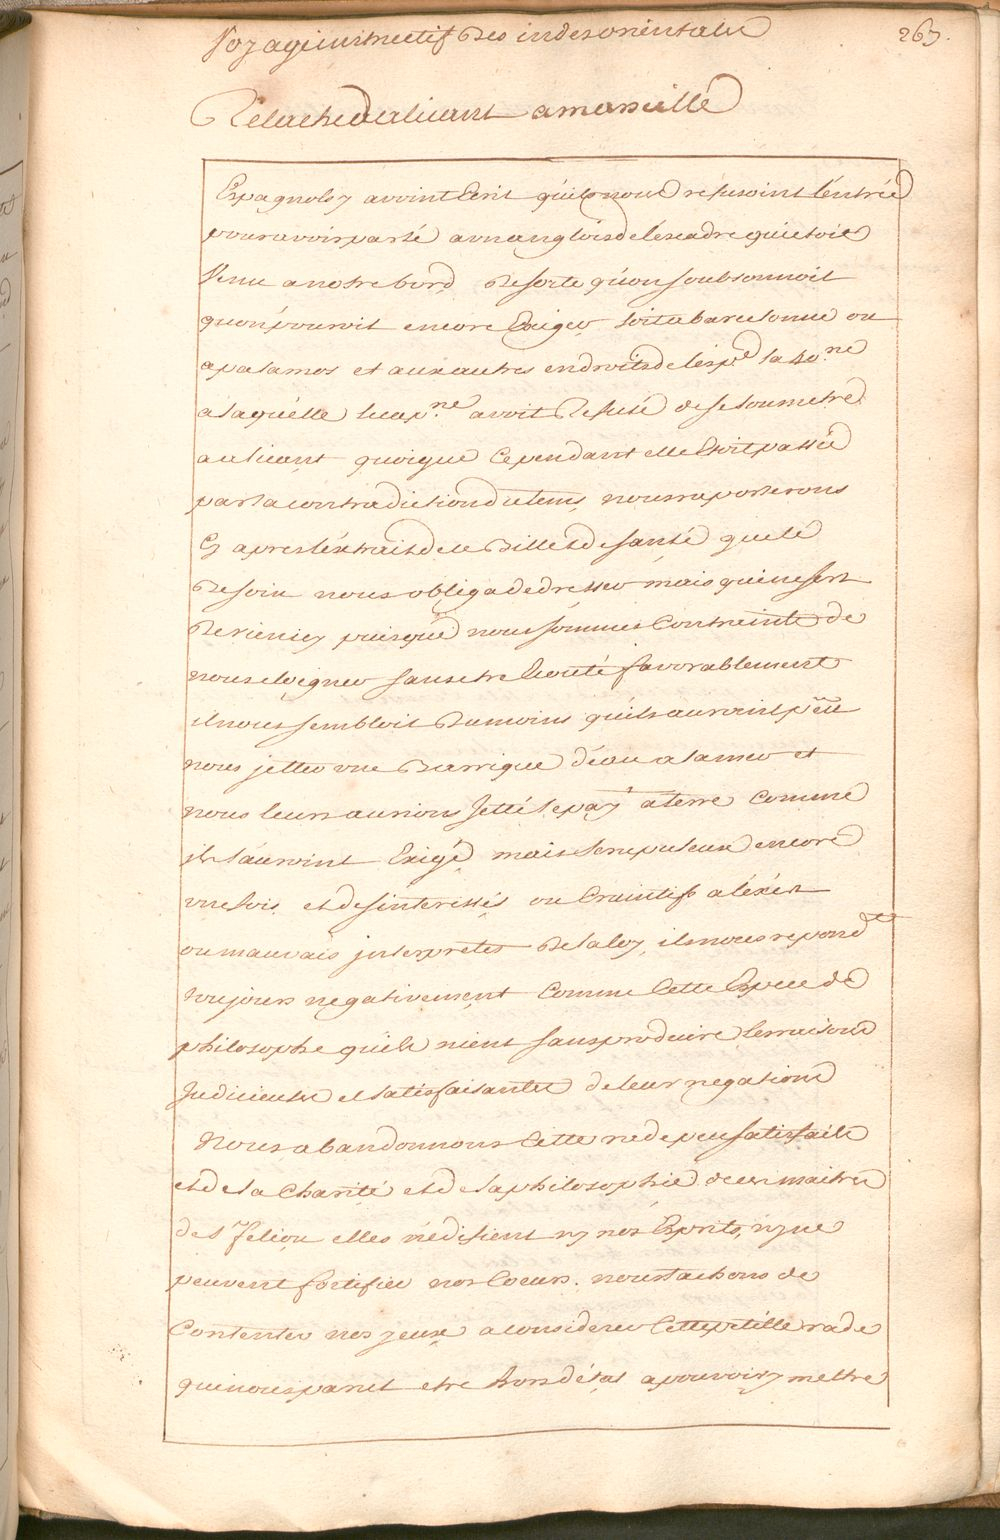 Voyage instructif Des indes orientales
267.
Relache d'alicant a marseille
Espagnols y avoint Ecrit qu'ils nous refusoint l'entrée
pour avoir parlé a un anglois de l'escadre qui etoit
Venu a notre bord, De sorte qu'on soubsonnoit
qu'on pouroit encore Exiger soit a barcelonne ou
a palamos et aux autres endroits de l'esp.e la 40.ne
a laquelle le cap.ne avoit Refusé de se soumetre
a alicant quoique Cependant elle Etoit passée
par la contradiction du tems, nous raporterons
Cy apres l'extrait de ce Billet de santé que le
Besoin nous obliga de dresser mais qui ne sert
De rien icy puisque nous sommes Contreints de
nous eloigner sans etre Ecouté favorablement
il nous sembloit Du moins qu'ils auroint pëu
nous jetter une Barrique d'eau a la mer et
nous leurs aurions Jetté le pay a terre Comme
ils l'auroint Exigé, mais scrupuleux encore
une fois et desinteressés ou Craintifs a l'éxés
ou mauvais jnterpretes De la loy, ils nous repond.ent
toujours negativement Comme Cette Espece de
philosophe qu'ils nient sans produire les raisons
Judicieuses et satisfaisantes de leur negations
Nous abandonnons Cette rade peu satisfaits
et de la Charité et de la philosophie de ces maitres
de s.t feliou elles n'edifient ny nos Esprits, ny ne
peuvent fortifier nos Coeurs. nous tachons de
Contenter nos yeux a considerer Cette petitte rade
qui nous parut etre hors d'état a pouvoir y mettre